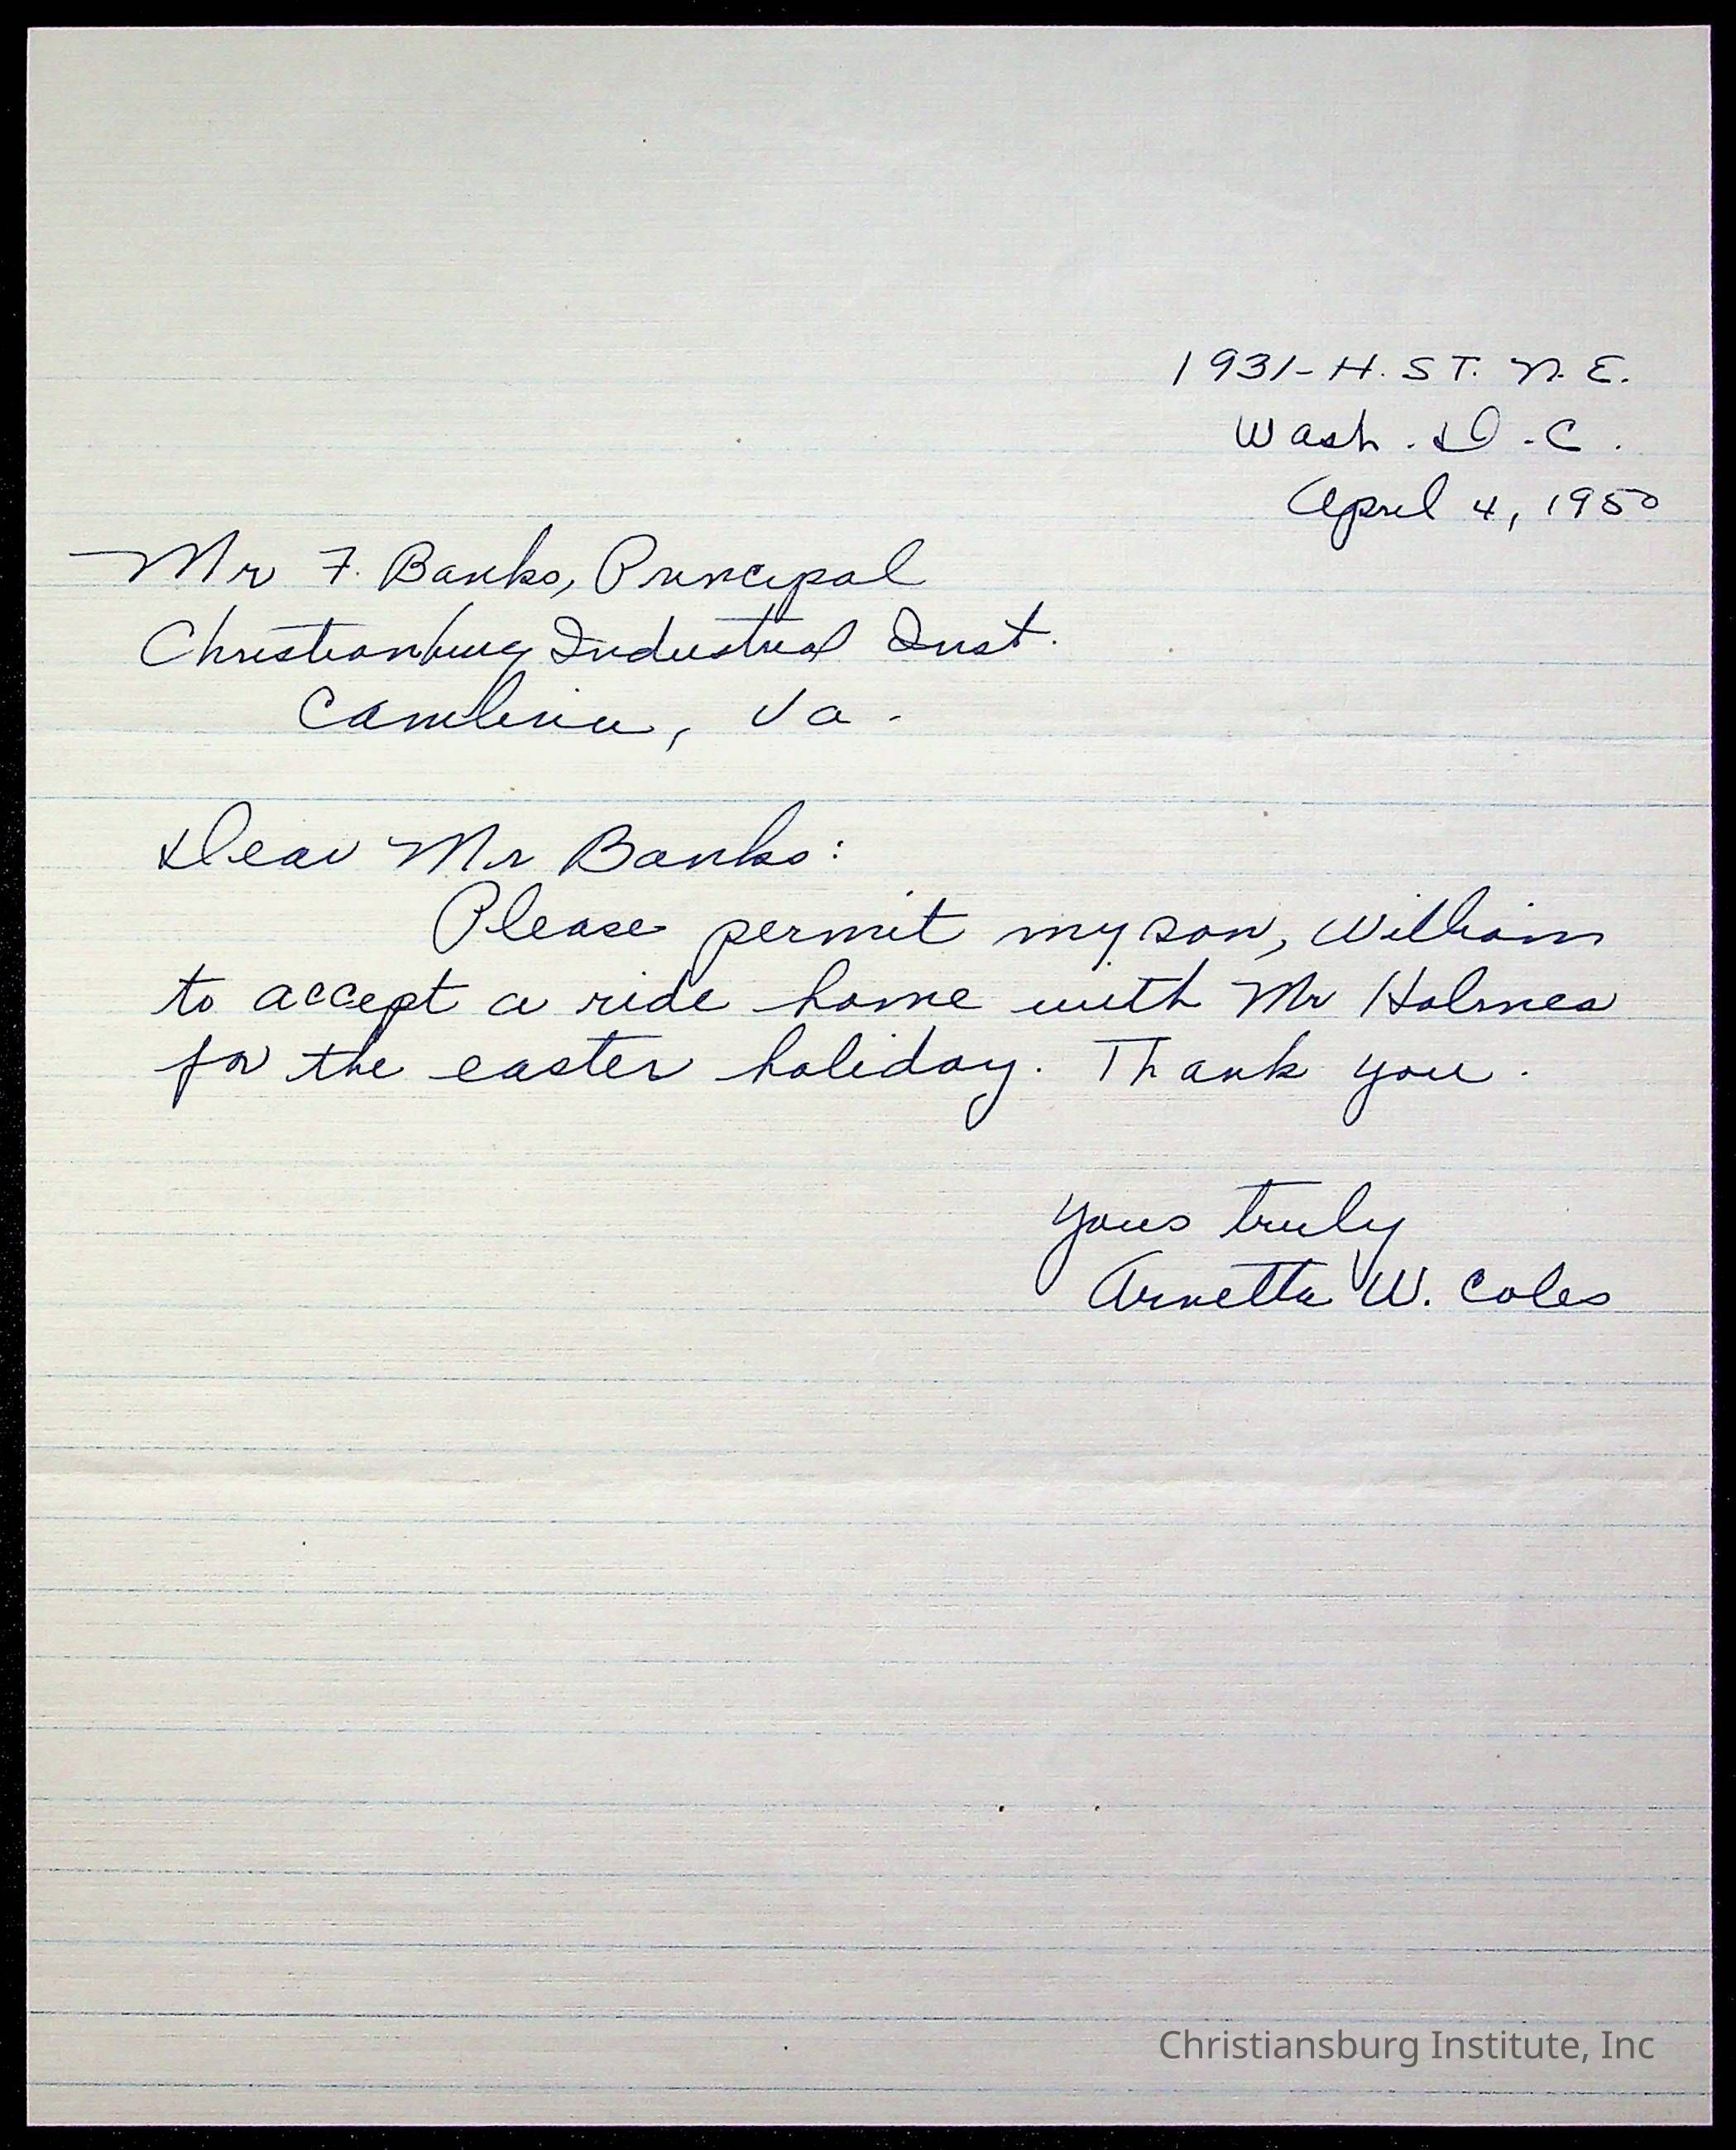 1931- H. ST. N. E.
Wash. D.C.
April 4, 1950
Mr F. Banks, Principal
Christianburg Industrial Inst.
Cambria, Va.
Dear Mr Banks:
Please permit my son, William
to accept a ride home with Mr Holmes
for the easter holiday. Thank you.
Yours truly
Arnetta W. Coles
Christiansburg Institute, Inc